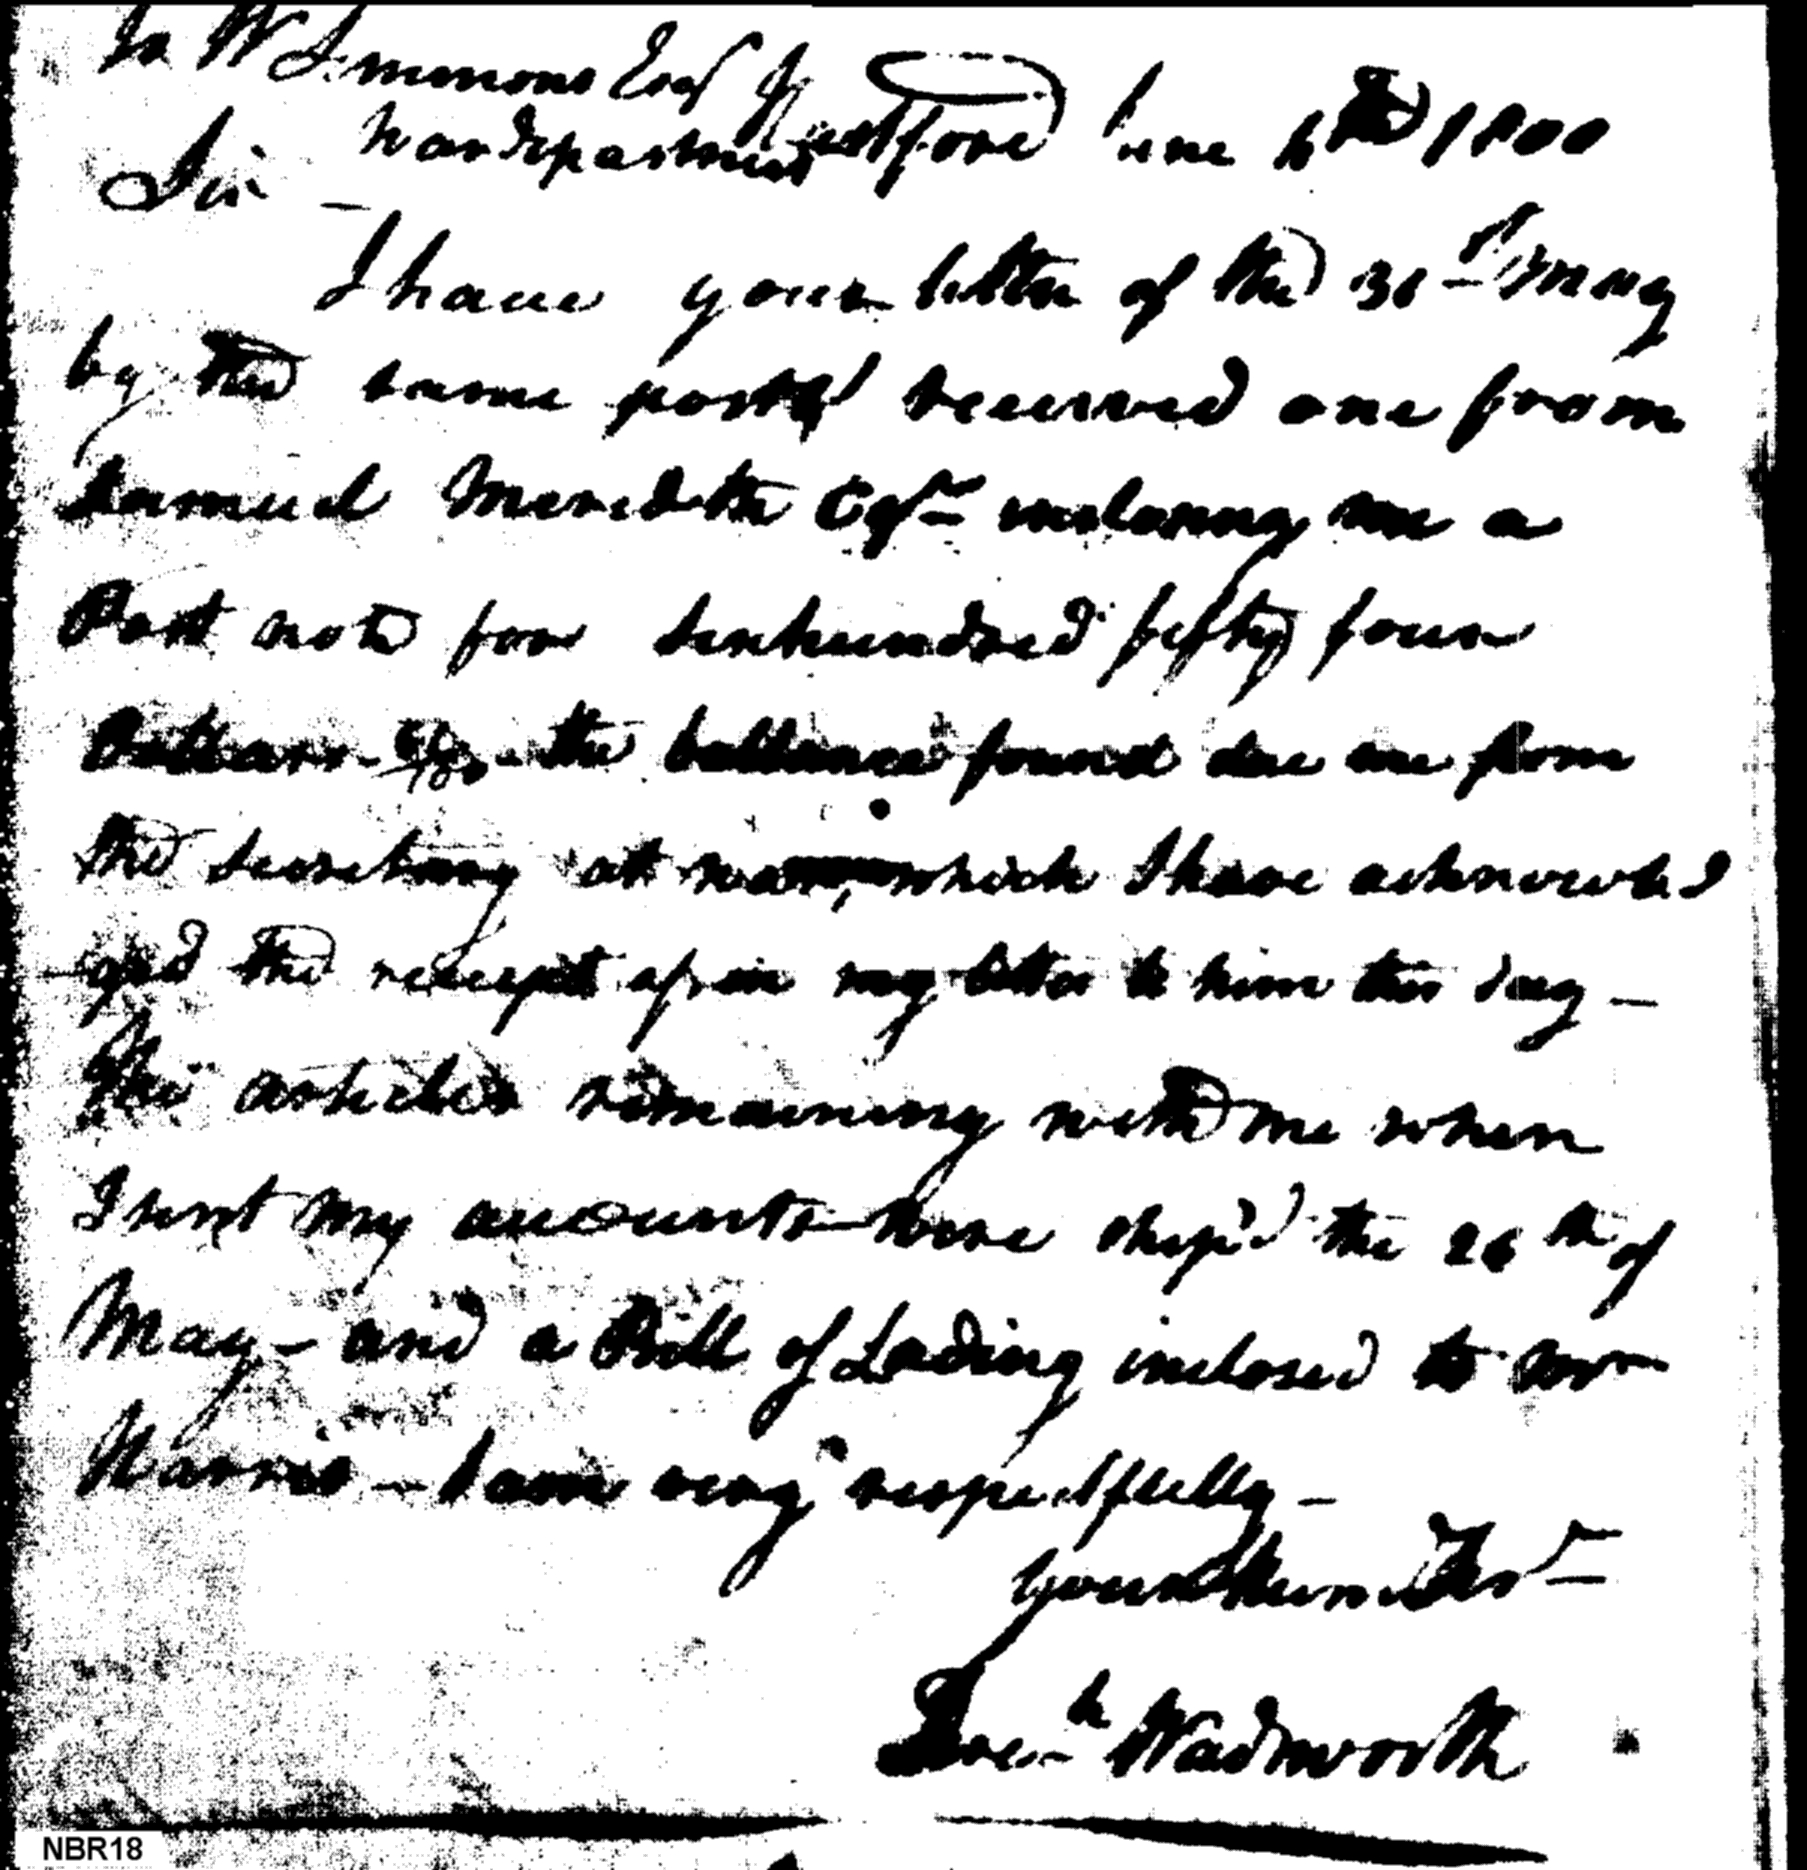 To W Simmons Esq
War department
Hartford June 6th 1800
Sir —
I have your letter of the 31st May
by the same post I received one from
Samuel Meredith Esqr inclosing me a
Post note for sixhundred fifty four
Dollars the ballance found due me from
the Secretary at war, which I have acknowled
ged the receipt of in my letter to him this day —
The articles remaining with me when
I sent my accounts were ship'd the 26th of
May — and a Bill of Lading inclosed to Mr
Harris — I am very respectfully —
your Hum Servt
Jereh Wadsworth
NBR18